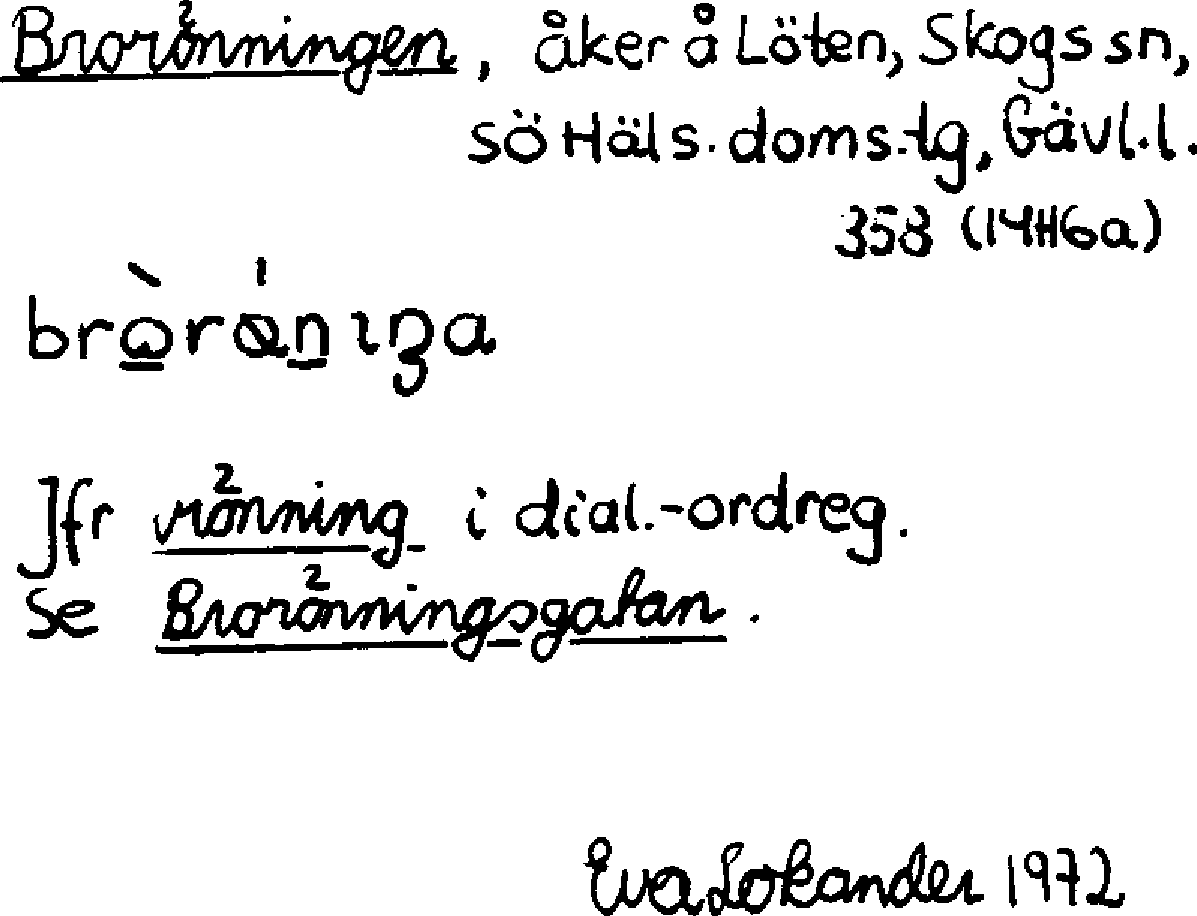 Brorönningen, åker å Löten, Skogs sn,
SÖ Häls. doms.-tg, Gävl.l.
358 (14H6a)
Jfr rönning i dial.-ordreg.
Se Brorönningsgatan.
Eva Lokander 1972